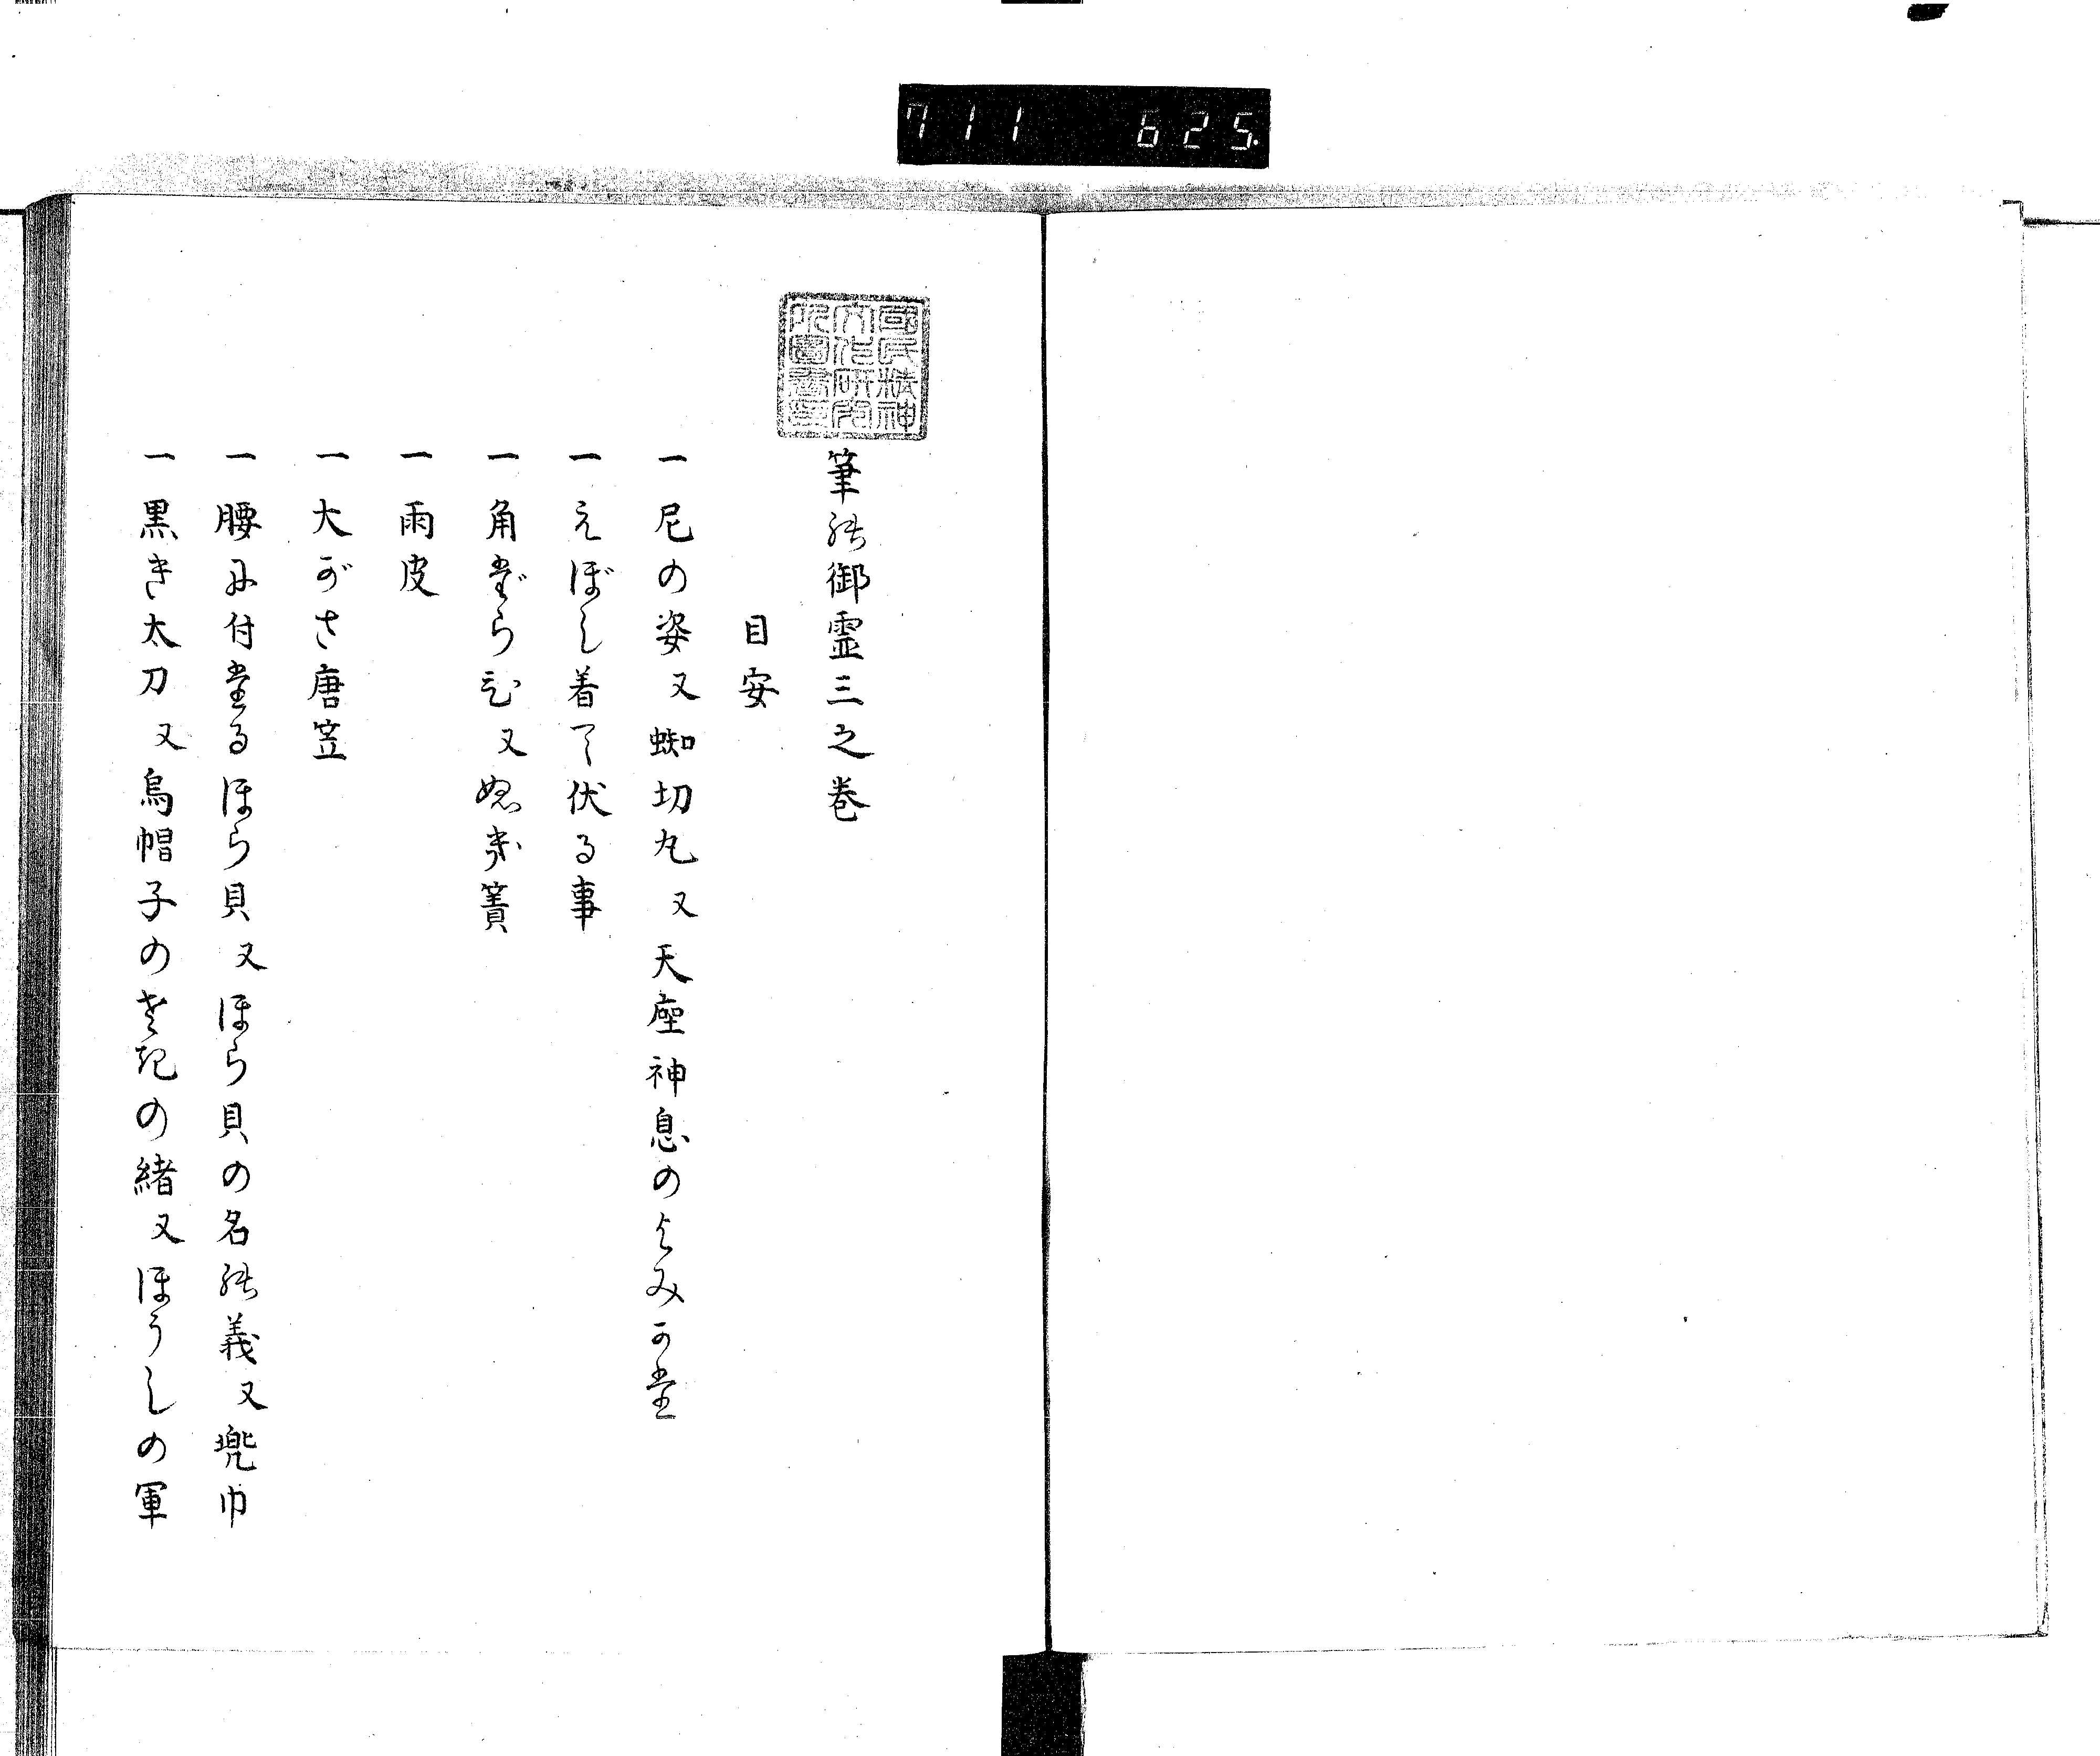 711 625
國民精神
文化研究
所圖書印
筆能御霊三之巻
目安
一 尼の姿又蜘切丸又天座神息のよみかた
一 えぼし着て伏る事
一 角だらひ又ぬきす簀
一 雨皮
一 大がさ唐笠
一 腰に付たるほら貝又ほら貝の名能義又兜巾
一 黒き太刀又烏帽子のまねきの緒又ほうしの軍